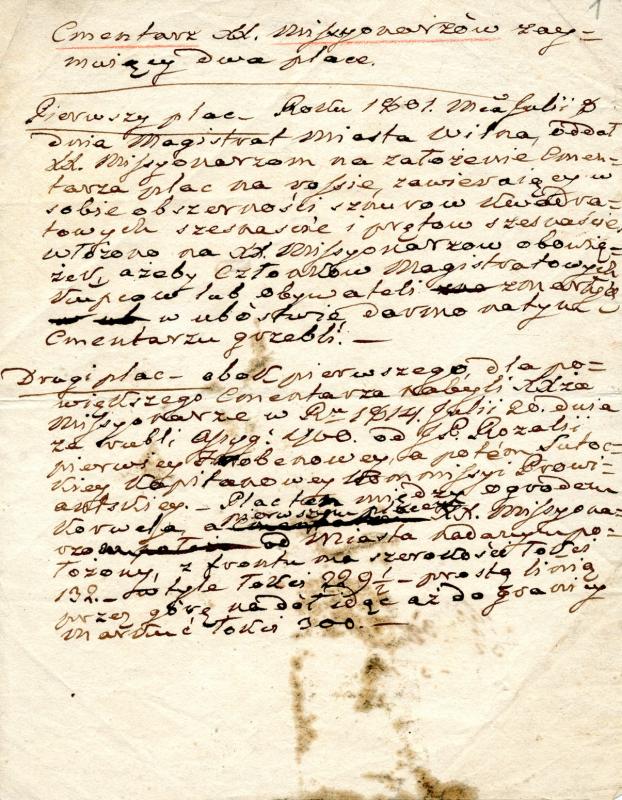 1
Cmentarz XX. Missyonarzów zay-
muiący dwa place.
Pierwszy plac - Roku 1801. Mca Julii 8
dnia Magistrat Miasta Wilna, oddał
XX. Missyonarzom na założenie Cmen-
tarza plac na rossie, zawieraiący w
sobie obszerności sznurow kwadra-
towych szesnaście i prętow szesnaście,
włożono na XX. Missyonarzow obowią-
zek, ażeby Członków Magistratowych
Kupcow lub obywateli zmarłych
w ubóstwie darmo na tym
Cmentarzu grzebli. —
Drugi plac - obok pierwszego, dla po-
większego Cmentarza nabyli XXża
Missyonarze w Ru 1814 Julii 20. dnia
za rubli assyg: od JP. Rozalii
pierwiey a potem
Kapitanowey Kommissyi Prowi-
antskiey. - Plac ten między ogrodem
Korwela, a pierwszym placem XX. Missyona-
rzom od Miasta nadanym po-
łożony, z frontu ma szerokości łokci
132. - w tyle łokci 229½ - prostą linią
przez górę na dół idąc aż do granicy
łokci 300. —